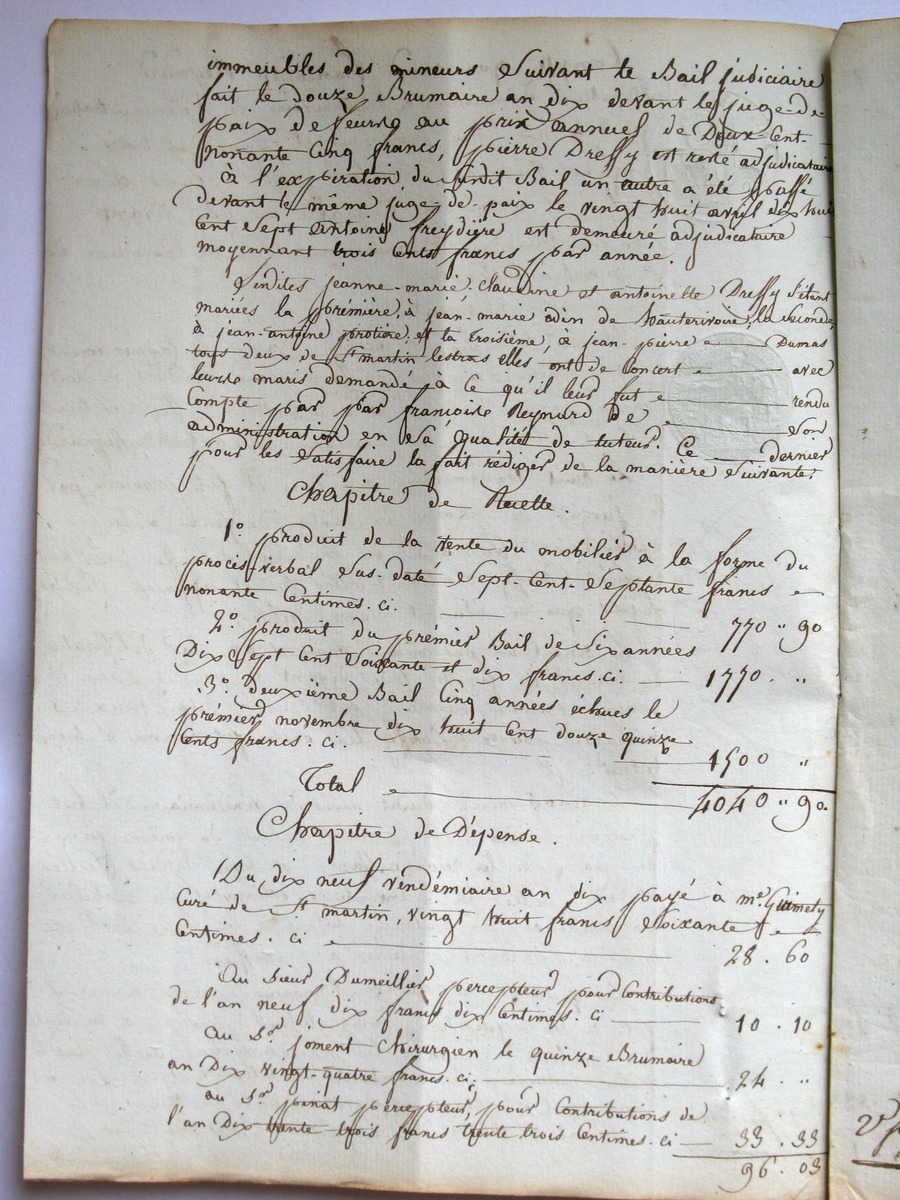 immeubles des mineurs Suivant le Bail judiciaire
fait le douze Brumaire an dix devant le juge-de-
paix de feurs au prix annuel de Deux-Cent-
nonante Cinq francs, pierre Dressy est resté adjudicataire
à l'expiration du susdit Bail un autre a été passé
devant le même juge-de-paix le vingt huit avril dix huit
Cent Sept antoine freydière est demeuré adjudicataire
moyennant trois Cents francs par année.
Lesdites jeanne-marie, Claudine et antoinette Dressy S'étant
mariées la première, à jean-marie adin de hauterivoire; la Seconde,
à jean-antoine protiere et la troisième, à jean-pierre Dumas
tous deux de St martin lestras elles ont de Concert avec
leurs maris demandé à Ce qu'il leur fut rendu
Compte par par francoise Reynard de Son
administration en Sa qualité de tuteur. Ce dernier
pour les Satisfaire la fait rédiger de la manière Suivante:
Chapitre de Recette.
1o. produit de la vente du mobilier à la forme du
procès-verbal Sus-daté Sept-Cent-Septante francs
nonante Centimes. ci. 770 " 90
2o. produit du prémier Bail de Six années
Dix Sept Cent Soixante et dix francs. ci. 1770. "
3o. deuxième Bail Cinq années échues le
prémier novembre dix huit Cent douze quinze
Cents francs. ci. 1500 "
Total 4040 " 90
Chapitre de Dépense.
Du dix neuf vendémiaire an dix payé à me. Guimety
Curé de St martin, vingt huit francs Soixante
Centimes. ci 28. 60
Au Sieur Dumeillier percepteur pour Contributions
de l'an neuf dix francs dix Centimes. ci 10. 10
au Sr. joment Chirurgien le quinze Brumaire
an Dix vingt-quatre francs. ci: 24. "
au Sr. pinat percepteur, pour Contributions de
l'an Dix trente trois francs trente trois Centimes. ci 33. 33
96. 03